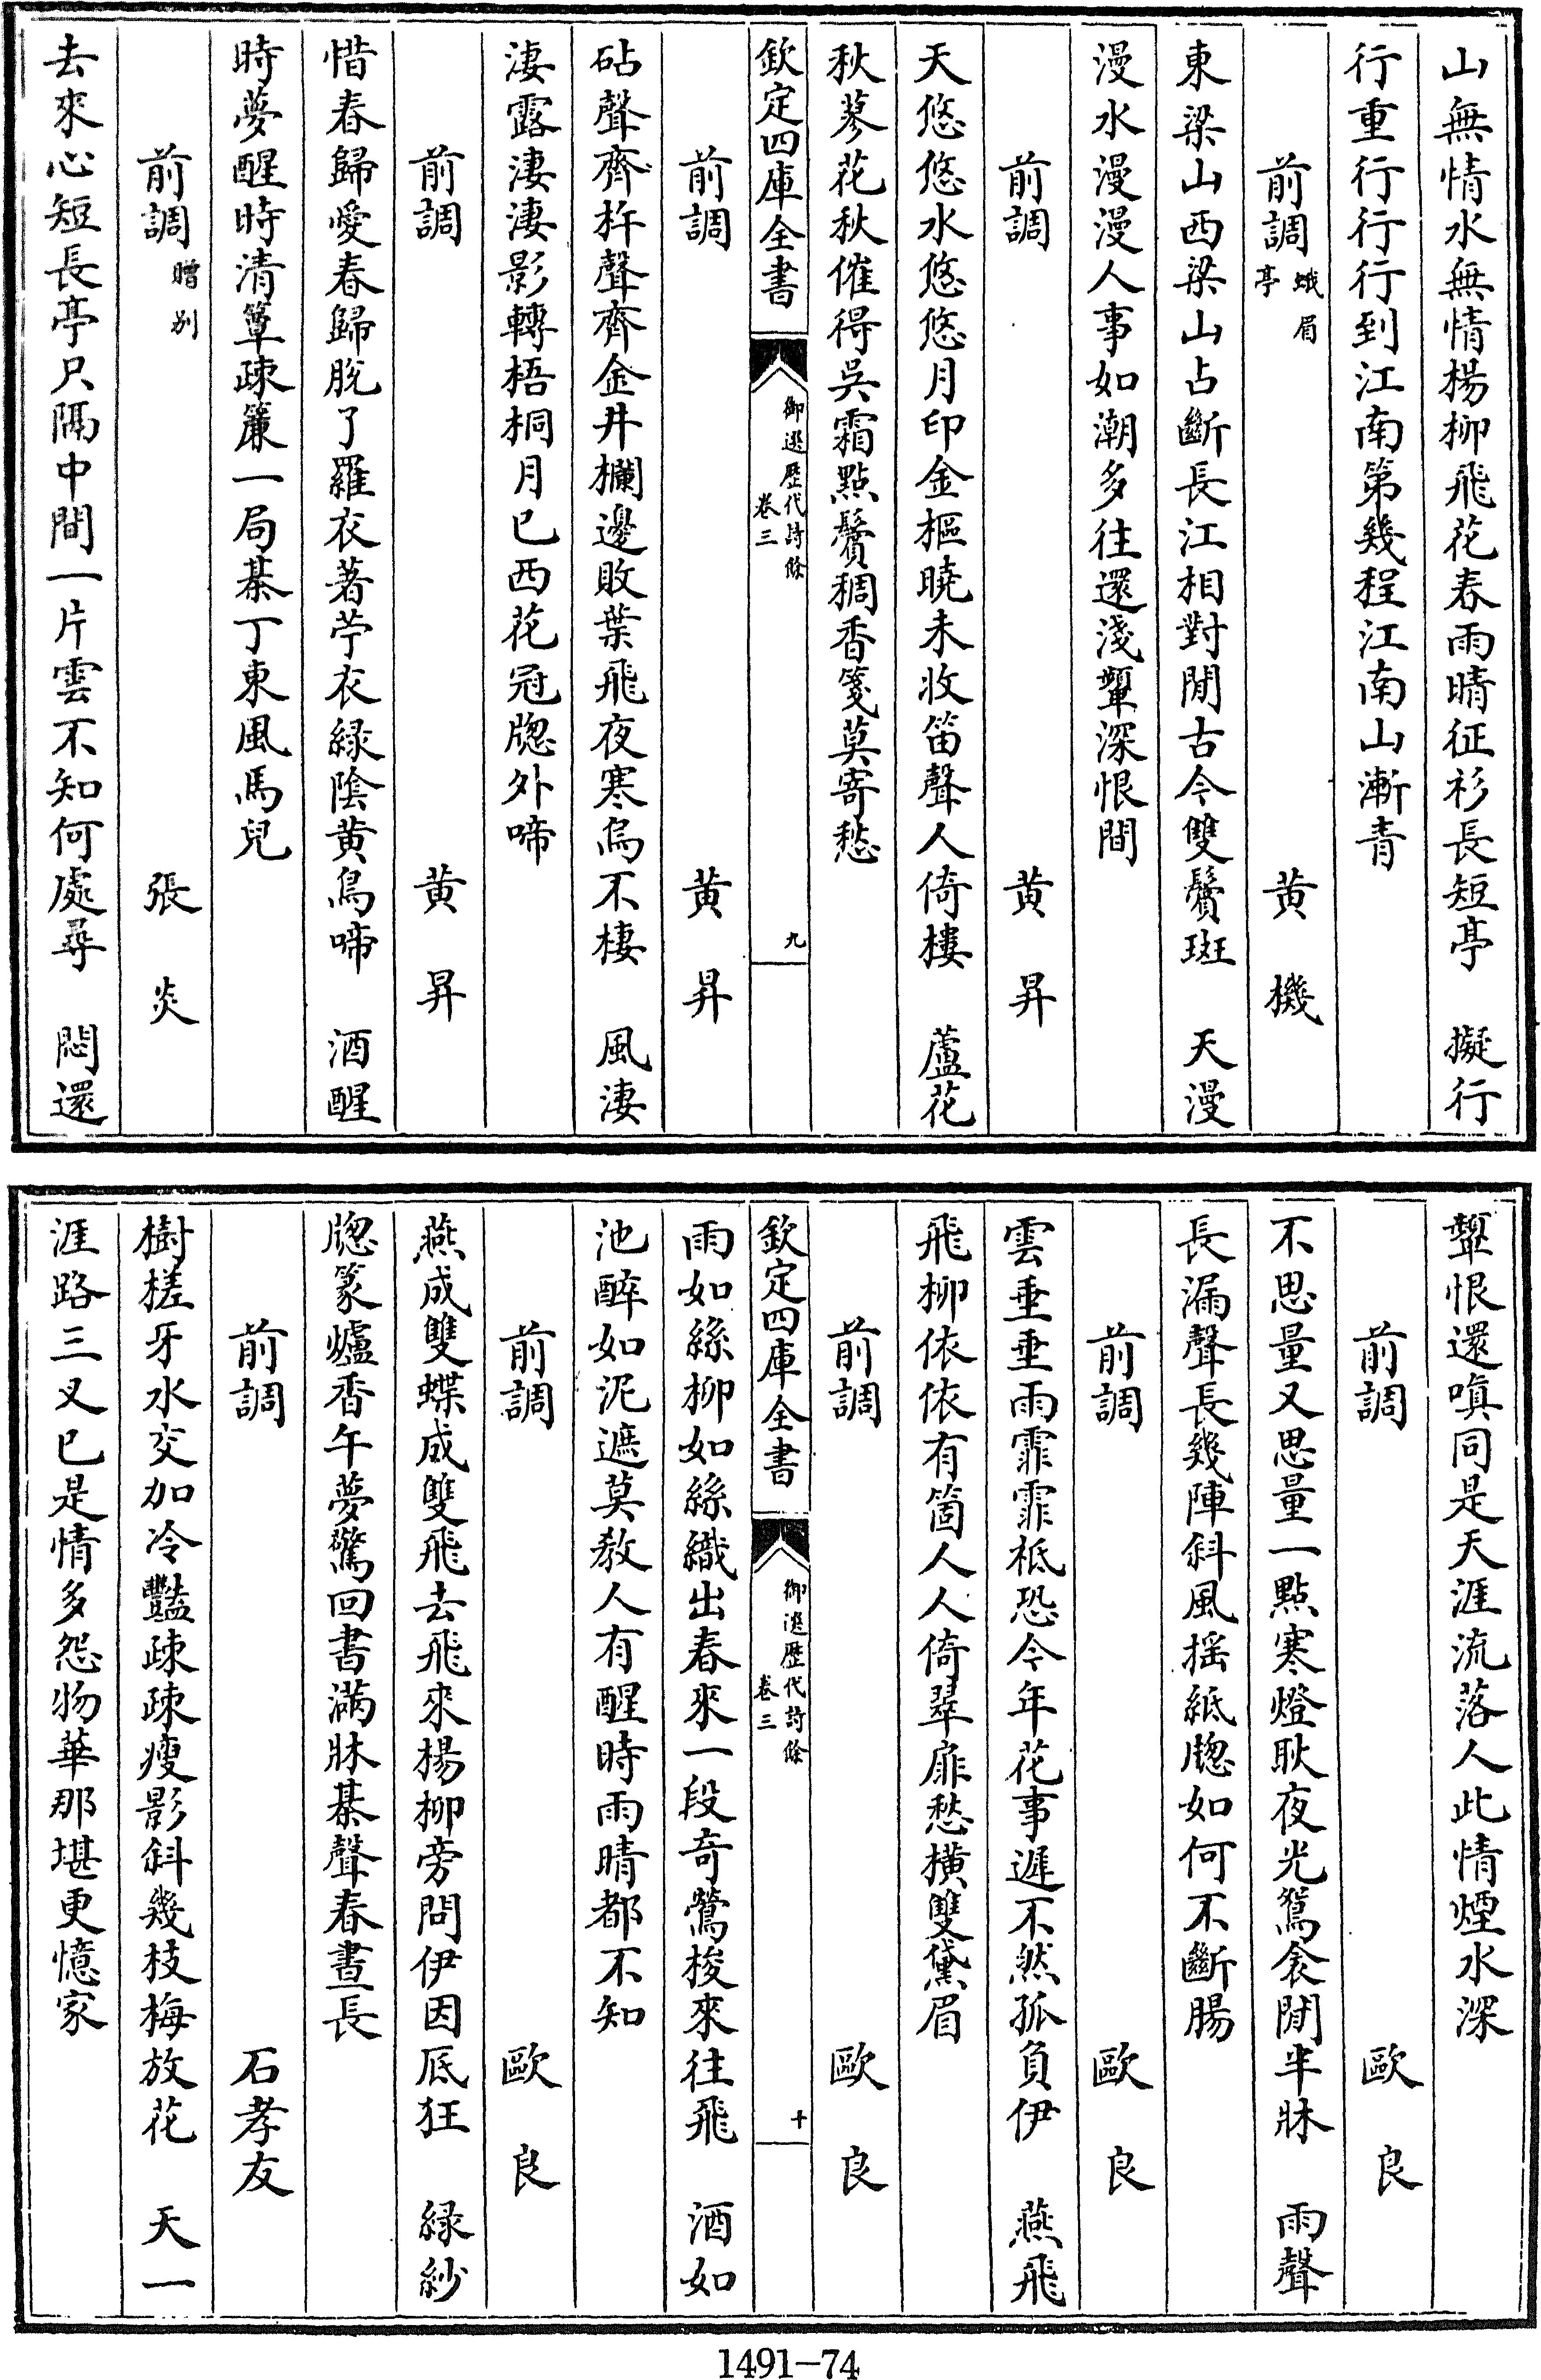 山無情水無情楊柳飛花春雨晴征衫長短亭　擬行
行重行行行到江南第幾程江南山漸青
前調蛾眉亭　黄機
東梁山西梁山占斷長江相對閒古今雙鬢斑　天漫
漫水漫漫人事如潮多往還淺顰深恨間
前調　黄昇
天悠悠水悠悠月印金樞曉未收笛聲人倚樓　蘆花
秋蓼花秋催得吳霜點鬢稠香箋莫寄愁
欽定四庫全書　御選歷代詩餘卷三　九
前調　黄昇
砧聲齊杵聲齊金井欄邊敗葉飛夜寒烏不棲　風淒
淒露淒淒影轉梧桐月已西花冠牕外啼
前調　黄昇
惜春歸愛春歸脫了羅衣著苧衣緑陰黄鳥啼　酒醒
時夢醒時清簟疎簾一局棊丁東風馬兒
前調贈别　張炎
去來心短長亭只隔中間一片雲不知何處尋　悶還
顰恨還嗔同是天涯流落人此情煙水深
前調　歐良
不思量又思量一點寒燈耿夜光鴛衾閒半牀　雨聲
長漏聲長幾陣斜風摇紙牕如何不斷腸
前調　歐良
雲垂垂雨霏霏祇恐今年花事遲不然孤負伊　燕飛
飛柳依依有箇人人倚翠扉愁横雙黛眉
前調　歐良
欽定四庫全書　御選歷代詩餘卷三　十
雨如絲柳如絲織出春來一段奇鶯梭來往飛　酒如
池醉如泥遮莫教人有醒時雨晴都不知
前調　歐良
燕成雙蝶成雙飛去飛來楊柳旁問伊因底狂　緑紗
牕篆爐香午夢驚回書滿牀棊聲春晝長
前調　石孝友
樹槎牙水交加冷豔疎疎瘦影斜幾枝梅放花　天一
涯路三叉已是情多怨物華那堪更憶家
1491-74